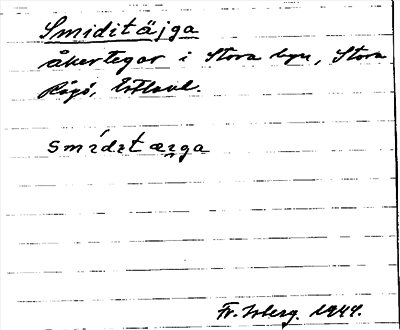 Smiditäjga
åkertegar i Stora byn, Stora
Rågö, Estland.
smidıtæı̯ga
Fr. Isberg. 1944.